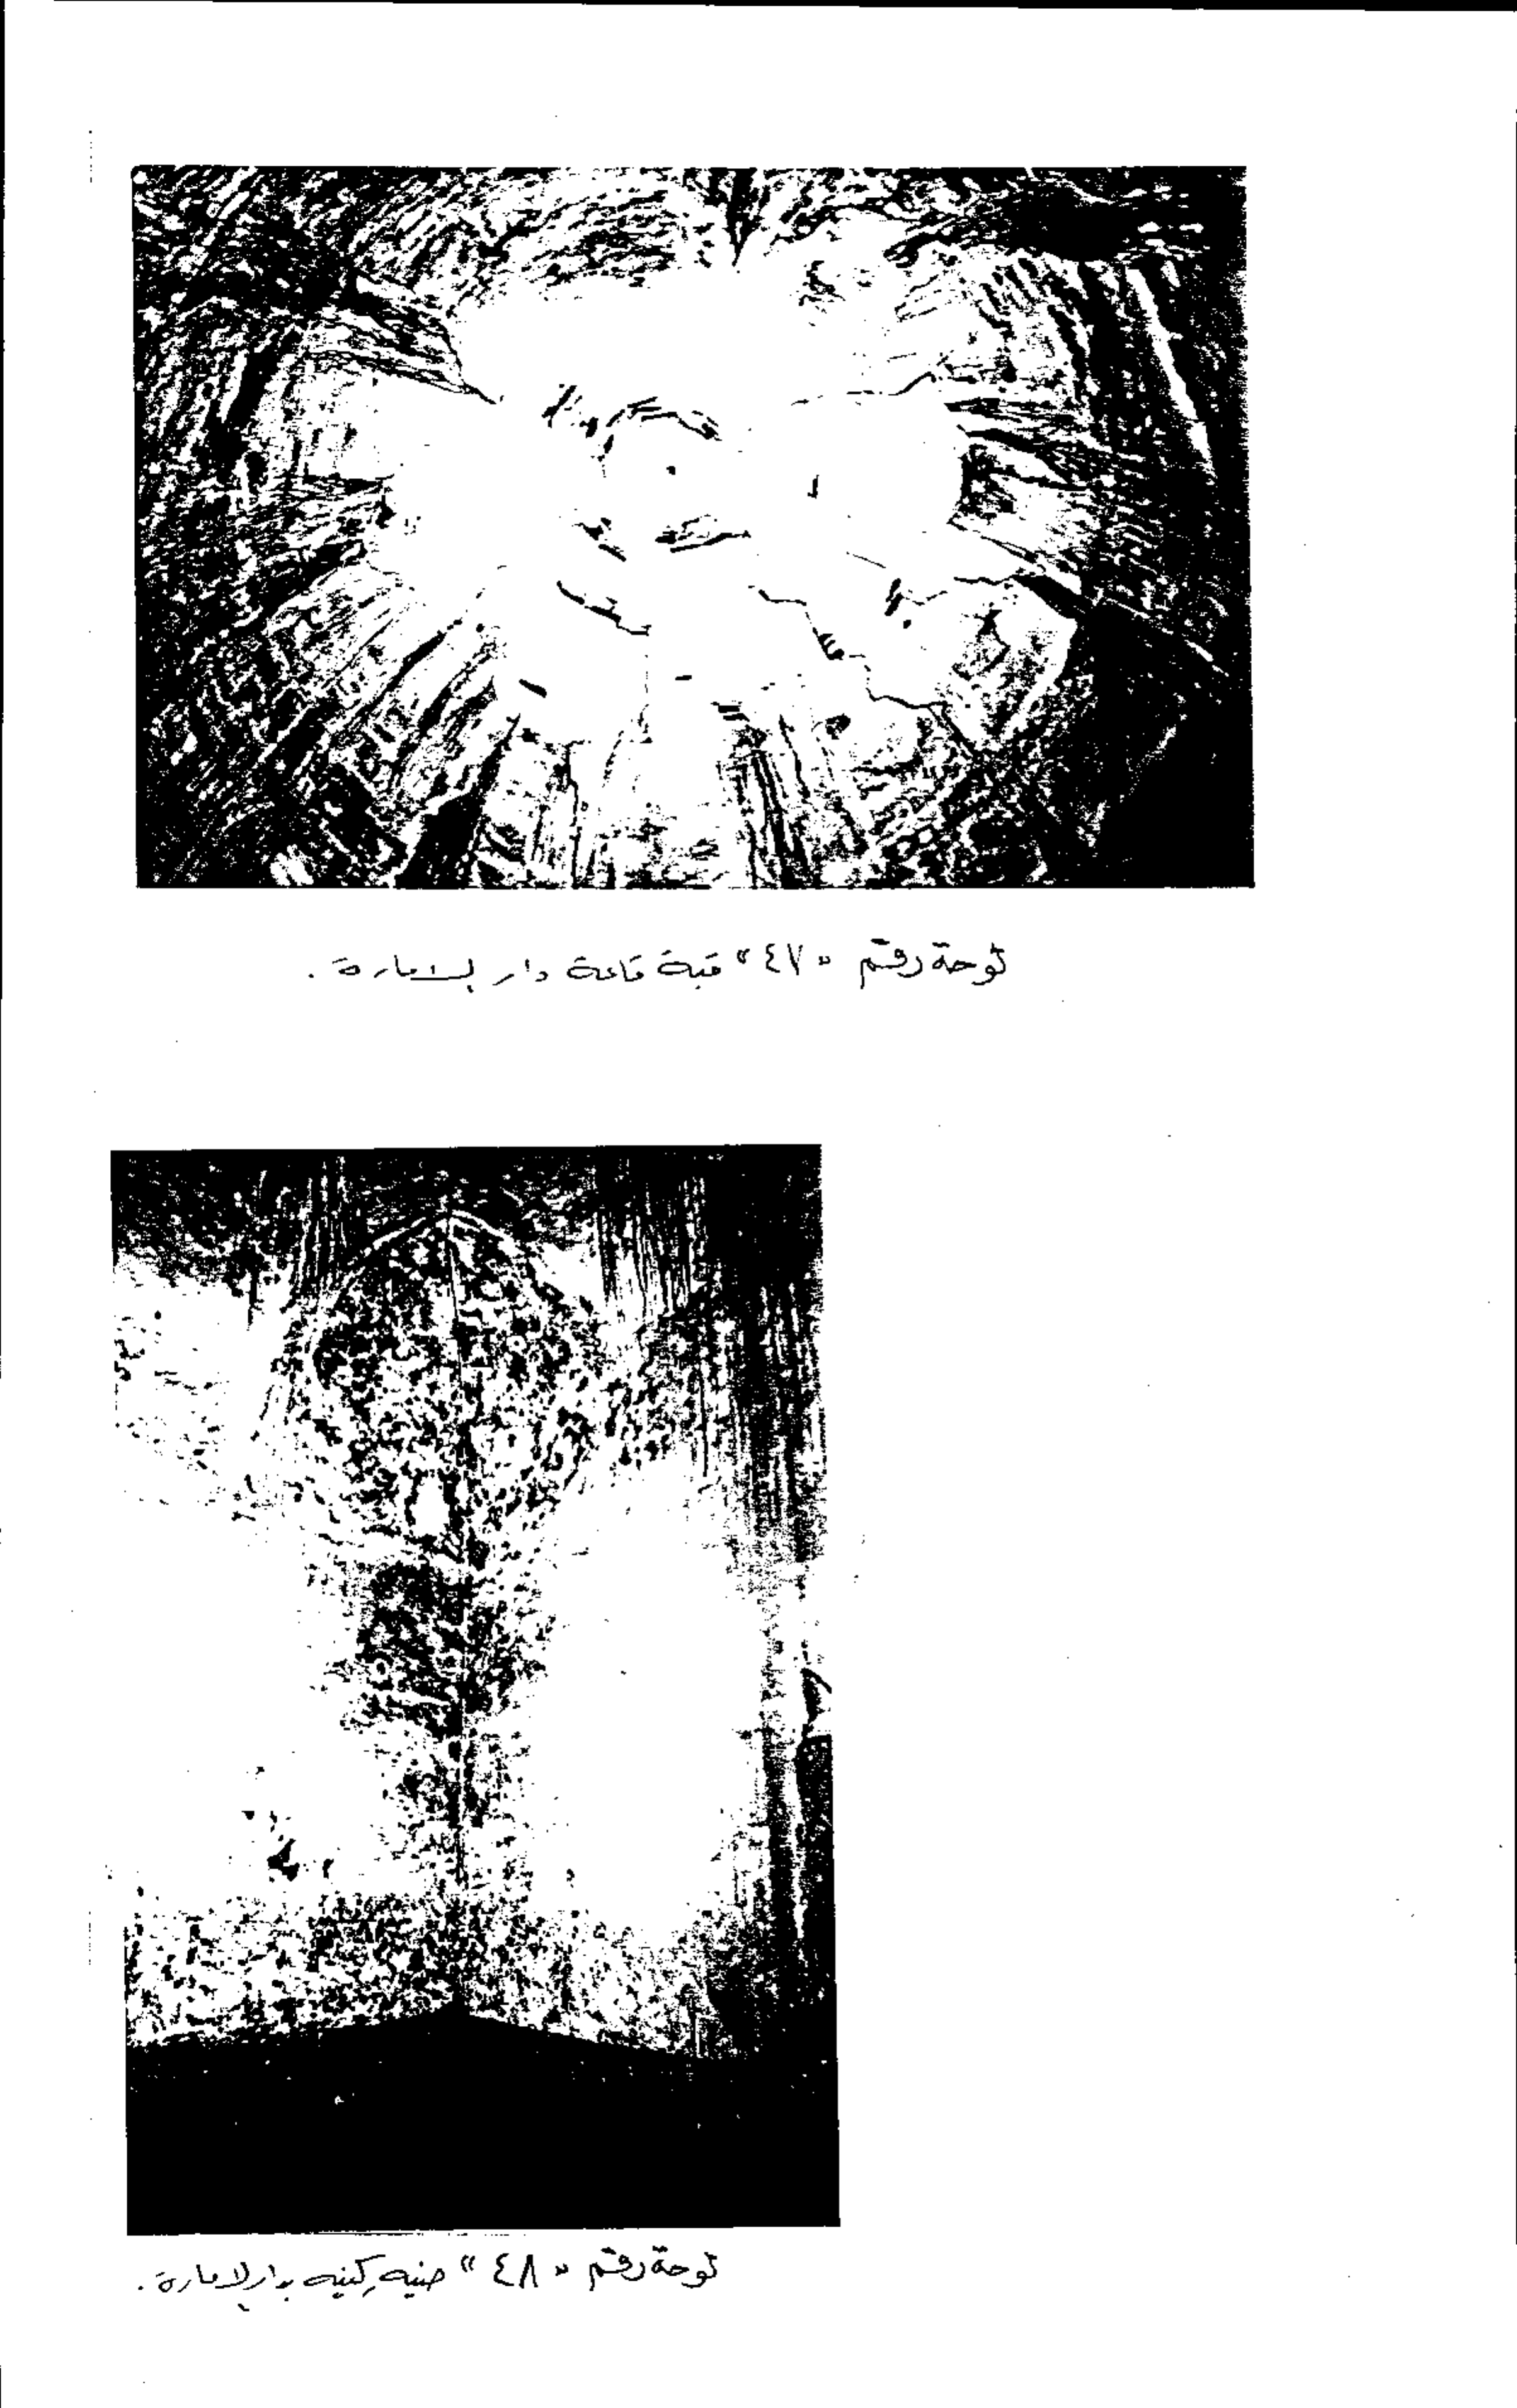 لوحة رقم « ٤٧ » قبة قاعة دار الامارة .
لوحة رقم « ٤٨ » حنية ركنيه بدار الامارة .